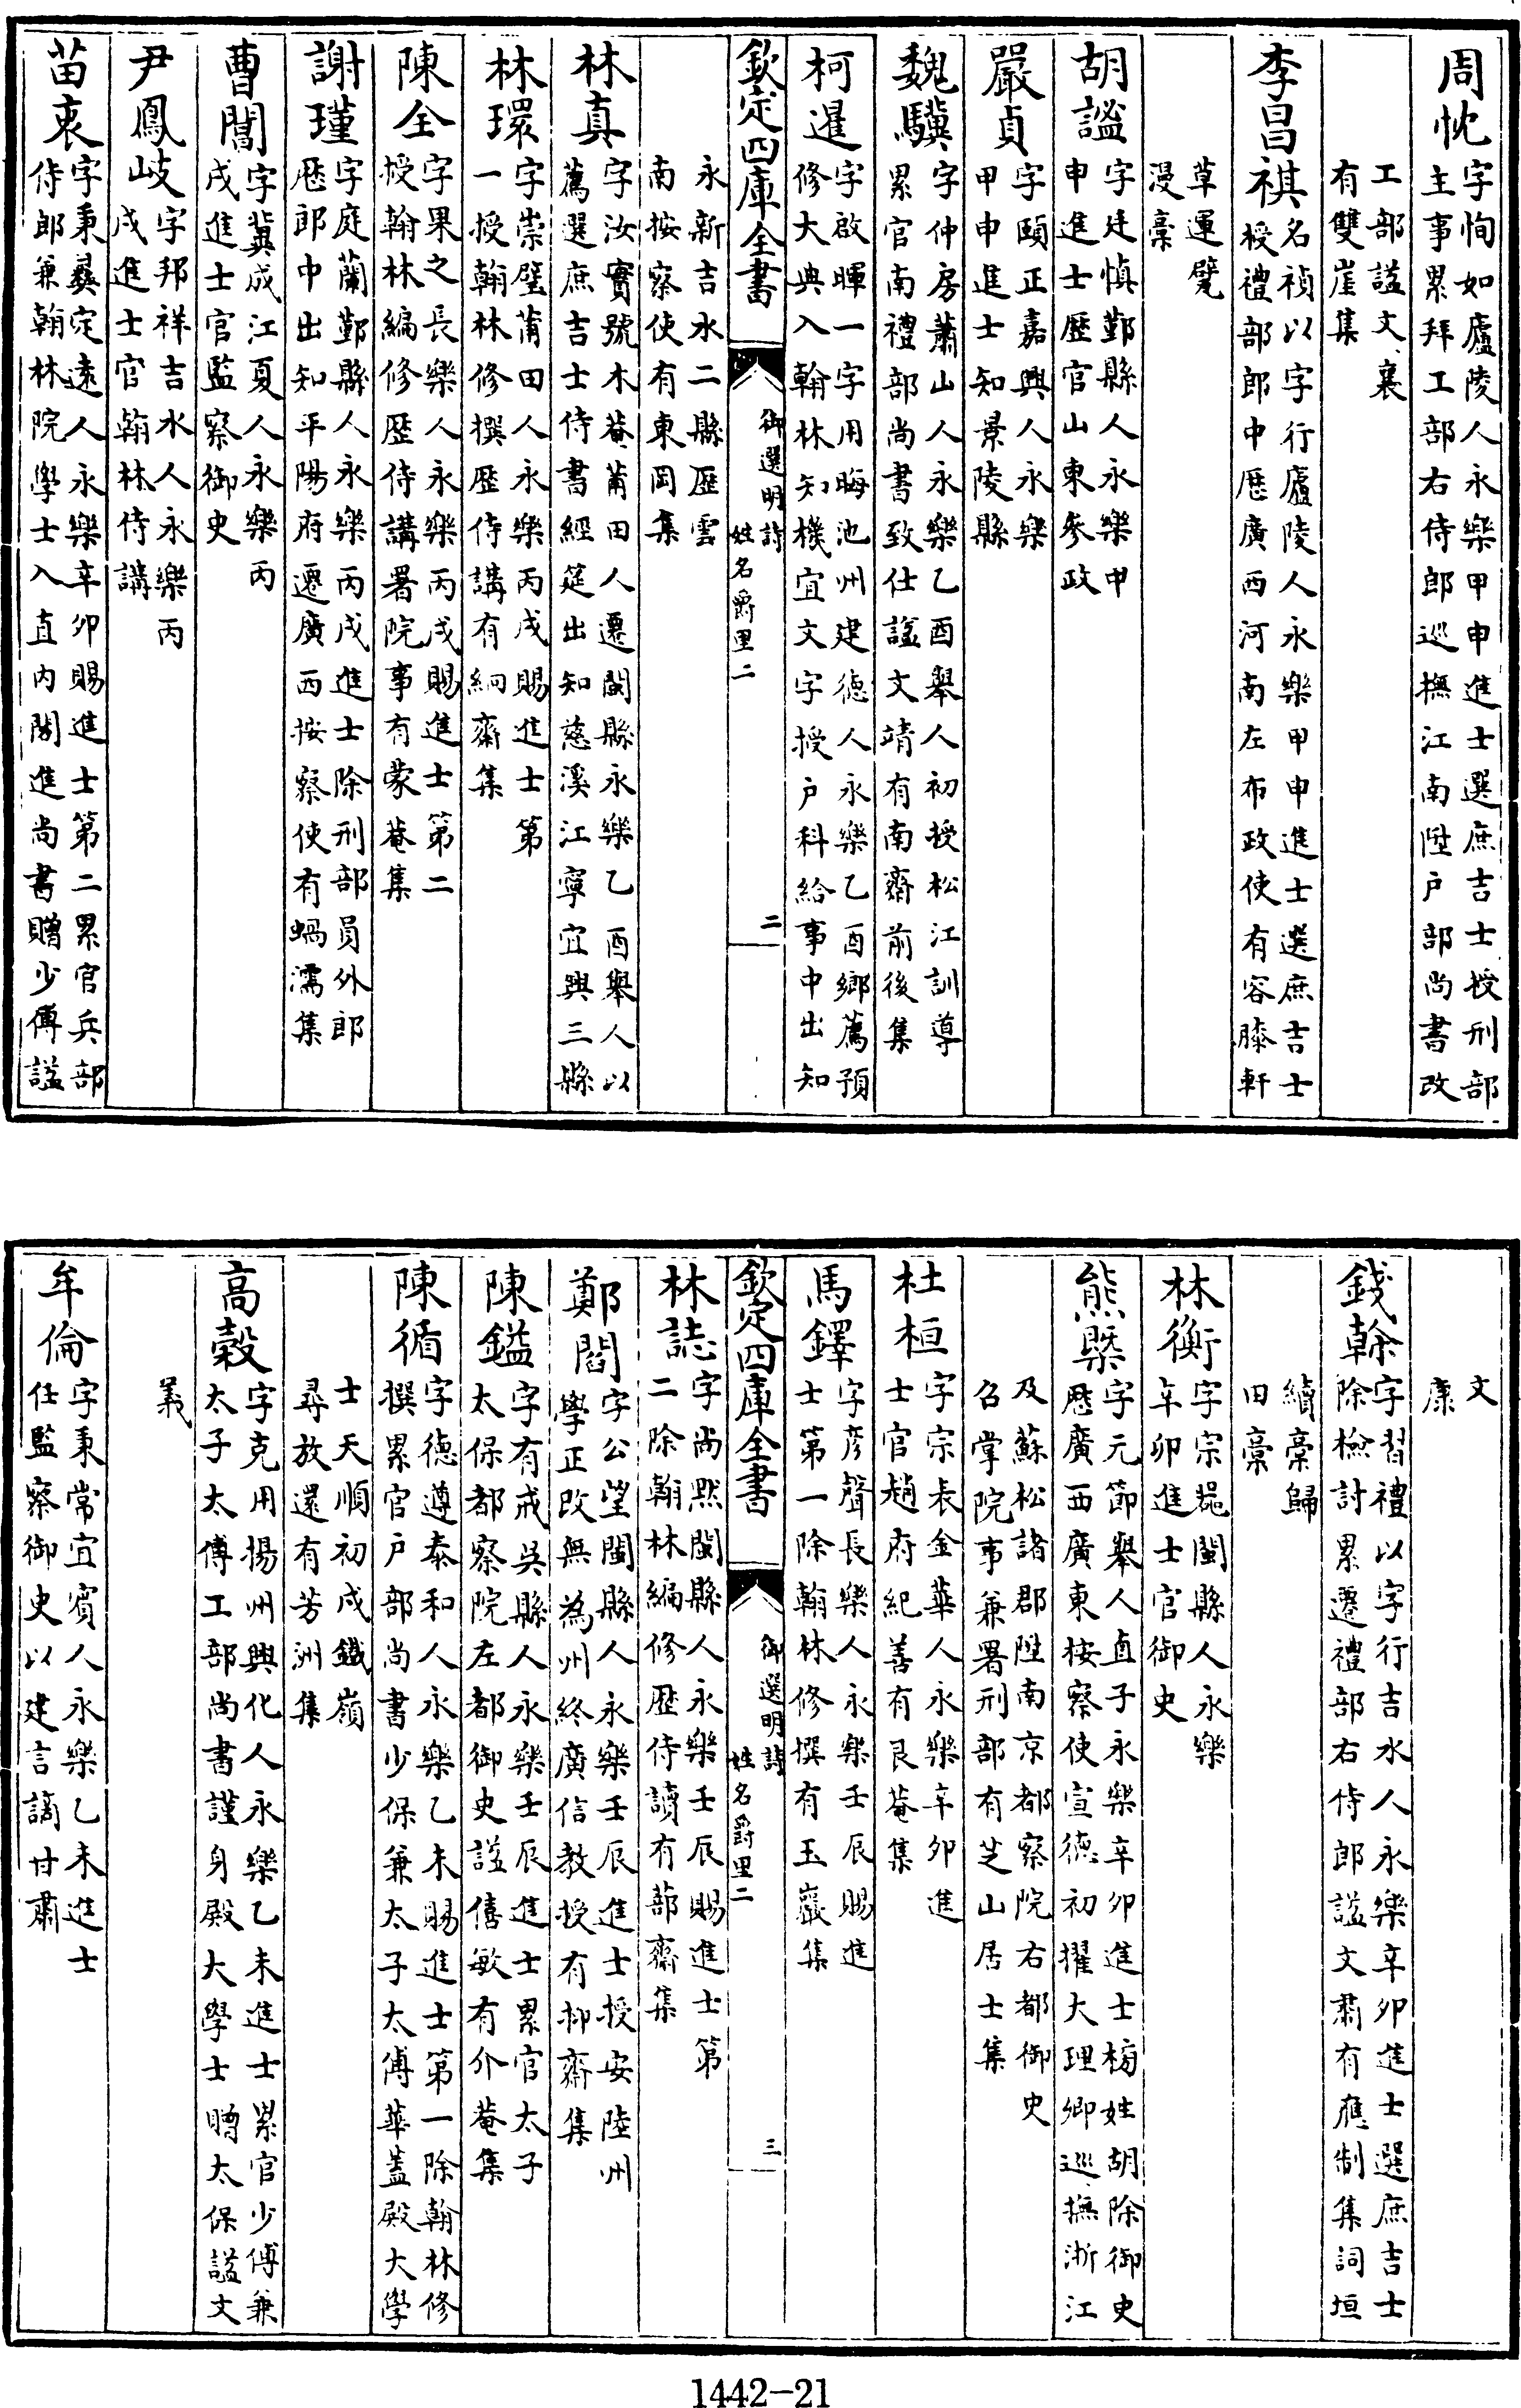 周忱字恂如廬陵人永樂甲申進士選庶吉士授刑部
主事累拜工部右侍郎巡撫江南陞户部尚書改
工部諡文襄
有雙崖集
李昌祺名禎以字行廬陵人永樂甲申進士選庶吉士
授禮部郎中歴廣西河南左布政使有容膝軒
草運甓
漫稾
胡謐字廷慎鄞縣人永樂甲
申進士歴官山東參政
嚴貞字頤正嘉興人永樂
甲申進士知景陵縣
魏驥字仲房蕭山人永樂乙酉舉人初授松江訓導
累官南禮部尚書致仕諡文靖有南齋前後集
柯暹字啟暉一字用晦池州建德人永樂乙酉鄉薦預
修大典入翰林知機宜文字授户科給事中出知
欽定四庫全書
御選明詩
姓名爵里二
二
永新吉水二縣歴雲
南按察使有東岡集
林真字汝實號木菴莆田人遷閩縣永樂乙酉舉人以
薦選庶吉士侍書經筵出知慈溪江寧宜興三縣
林環字崇璧莆田人永樂丙戌賜進士第
一授翰林修撰歴侍講有絅齋集
陳全字果之長樂人永樂丙戌賜進士第二
授翰林編修歴侍講署院事有蒙菴集
謝瑾字庭蘭鄞縣人永樂丙戌進士除刑部員外郎
歴郎中出知平陽府遷廣西按察使有蝸濡集
曹閶字冀成江夏人永樂丙
戌進士官監察御史
尹鳳岐字邦祥吉水人永樂丙
戌進士官翰林侍講
苗衷字秉彝定遠人永樂辛卯賜進士第二累官兵部
侍郎兼翰林院學士入直内閣進尚書贈少傅諡
文
康
錢榦字習禮以字行吉水人永樂辛卯進士選庶吉士
除檢討累遷禮部右侍郎諡文肅有應制集詞垣
續稾歸
田稾
林衡字宗㮣閩縣人永樂
辛卯進士官御史
熊槩字元節舉人直子永樂辛卯進士榜姓胡除御史
歴廣西廣東按察使宣德初擢大理卿巡撫浙江
及蘇松諸郡陞南京都察院右都御史
召掌院事兼署刑部有芝山居士集
杜桓字宗表金華人永樂辛卯進
士官趙府紀善有艮菴集
馬鐸字彦聲長樂人永樂壬辰賜進
士第一除翰林修撰有玉巖集
欽定四庫全書
御選明詩
姓名爵里二
三
林誌字尚黙閩縣人永樂壬辰賜進士第
二除翰林編修歴侍讀有蔀齋集
鄭閻字公望閩縣人永樂壬辰進士授安陸州
學正改無為州終廣信教授有抑齋集
陳鎰字有戒吳縣人永樂壬辰進士累官太子
太保都察院左都御史諡僖敏有介菴集
陳循字德遵泰和人永樂乙未賜進士第一除翰林修
撰累官户部尚書少保兼太子太傅華蓋殿大學
士天順初戍鐵嶺
尋放還有芳洲集
高穀字克用揚州興化人永樂乙未進士累官少傅兼
太子太傅工部尚書謹身殿大學士贈太保諡文
義
牟倫字秉常宜賓人永樂乙未進士
任監察御史以建言謫甘肅
1442-21